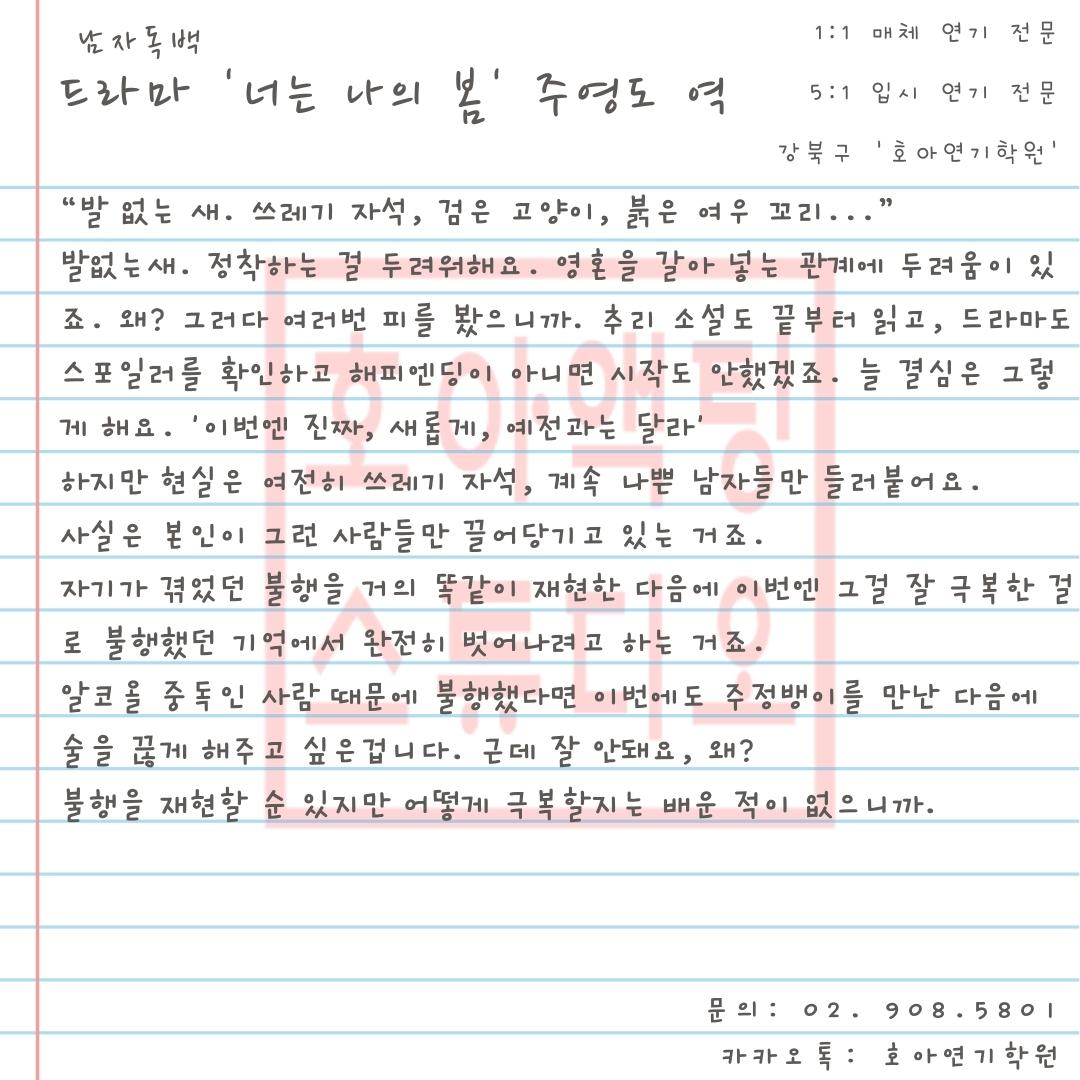 남자독백
드라마 '너는 나의 봄' 주영도 역
1:1 매체 연기 전문
5:1 입시 연기 전문
강북구 '호아연기학원'
“발 없는 새. 쓰레기 자석, 검은 고양이, 붉은 여우 꼬리...”
발없는새. 정착하는 걸 두려워해요. 영혼을 갈아 넣는 관계에 두려움이 있
죠. 왜? 그러다 여러번 피를 봤으니까. 추리 소설도 끝부터 읽고, 드라마도
스포일러를 확인하고 해피엔딩이 아니면 시작도 안했겠죠. 늘 결심은 그렇
게 해요. '이번엔 진짜, 새롭게, 예전과는 달라'
하지만 현실은 여전히 쓰레기 자석, 계속 나쁜 남자들만 들러붙어요.
사실은 본인이 그런 사람들만 끌어당기고 있는 거죠.
자기가 겪었던 불행을 거의 똑같이 재현한 다음에 이번엔 그걸 잘 극복한 걸
로 불행했던 기억에서 완전히 벗어나려고 하는 거죠.
알코올 중독인 사람 때문에 불행했다면 이번에도 주정뱅이를 만난 다음에
술을 끊게 해주고 싶은겁니다. 근데 잘 안돼요, 왜?
불행을 재현할 순 있지만 어떻게 극복할지는 배운 적이 없으니까.
호아액팅
스튜디오
문의: 02. 908.5801
카카오톡: 호아연기학원